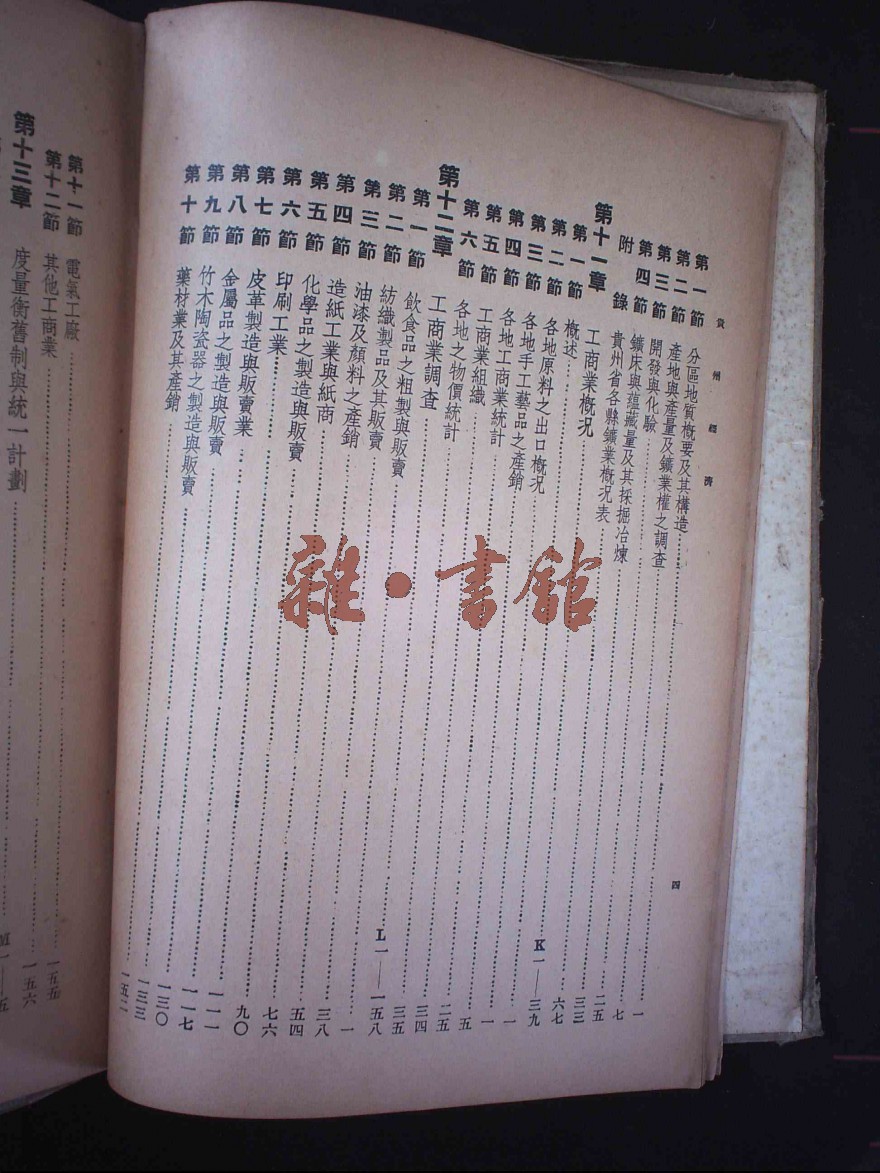 貴州經濟
四
第一節 分區地質概要及其構造 一
第二節 產地與產量及鑛業權之調查 七
第三節 開發與化驗 二五
第四節 鑛床與蘊藏量及其採掘冶煉 三三
附錄 貴州省各縣鑛業概況表 六七
第十一章 工商業概况 K一—三九
第一節 概述 一
第二節 各地原料之出口概况 一
第三節 各地手工藝品之產銷 五
第四節 各地工商業統計 二五
第五節 工商業組織 三四
第六節 各地之物價統計 三五
第十二章 工商業調查 L一—一五八
第一節 飲食品之粗製與販賣 一
第二節 紡織製品及其販賣 三八
第三節 油漆及顏料之產銷 五四
第四節 造紙工業與紙商 七六
第五節 化學品之製造與販賣 九〇
第六節 印刷工業 一一一
第七節 皮革製造與販賣業 一一七
第八節 金屬品之製造與販賣 一三〇
第九節 竹木陶瓷器之製造與販賣 一三三
第十節 藥材業及其產銷 一五二
第十一節 電氣工廠 一五五
第十二節 其他工商業 一五六
第十三章 度量衡舊制與統一計劃 M一—五
雜·書館